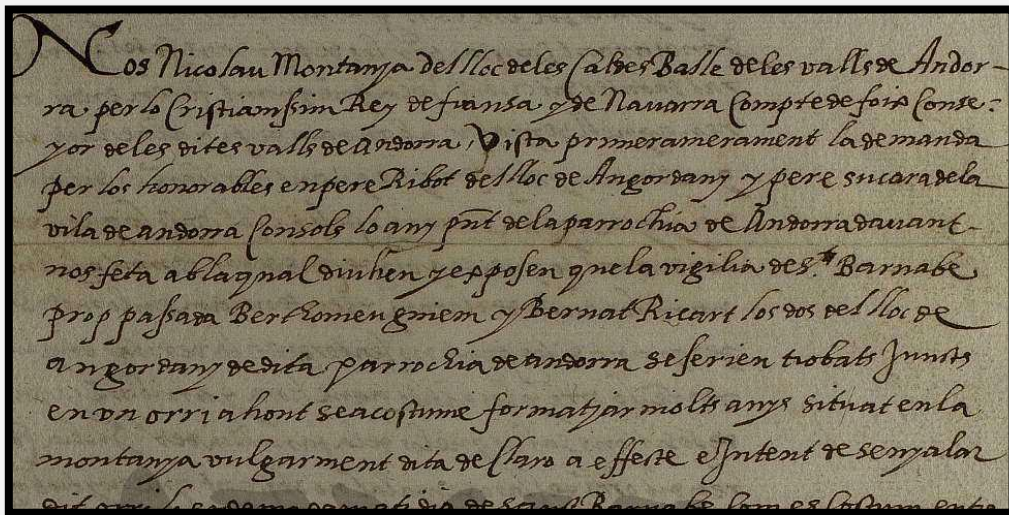 Nos Nicolau Montanya del lloc de les Caldes Balle de les valls de Andor-
ra per lo Cristianissim Rey de fransa y de Navarra Compte de foix Conse:
yor de les dites valls de andorra, Vista primeramerament la demanda
per los honorables en pere Ribot del lloc de Angordany y pere sucara de la
vila de andorra Consols lo any pnt de la parrochia de Andorra davant
nos feta ab la qual diuhen y expposen que la vigilia de st. Barnabe
prop passada Berthomeu guiem y Bernat Ricart los dos del lloc de
angordany de dita parrochia de andorra se serien trobats Juncts
en vn orri ahont se acostume formatjar molts anys situat en la
montanya vulgarment dita de Claro a effecte e Intent de senyalar
dit orri de Barnabe com es costum